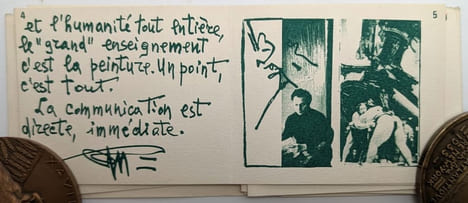 4
et l'humanité tout entière,
le "grand" enseignement
c'est la peinture. Un point,
c'est tout.
La communication est
directe, immédiate.
5